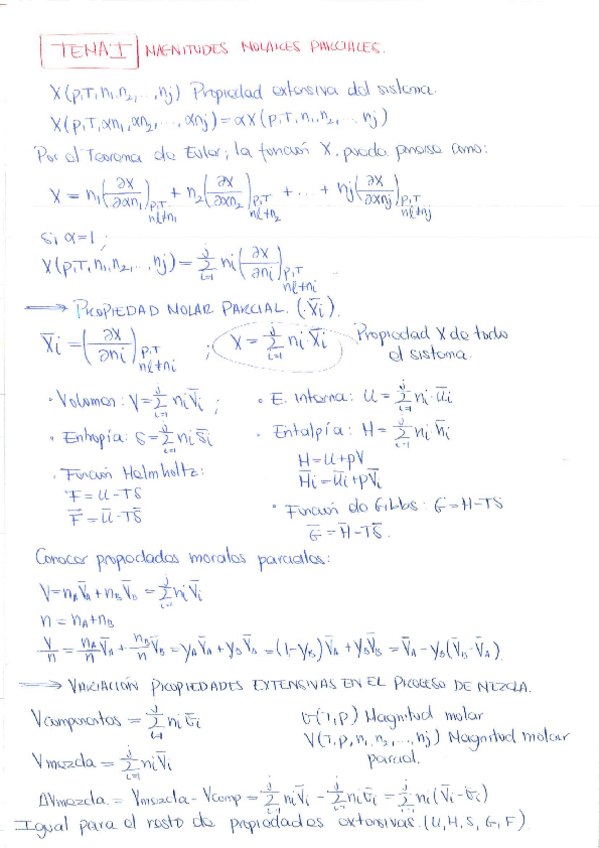 TEMA 1 MAGNITUDES MOLARES PARCIALES.
X(p,T,n₁,n₂,...,nj) Propiedad extensiva del sistema.
X(p,T,αn₁,αn₂,...,αnj)=αX(p,T,n₁,n₂,...,nj)
Por el Teorema de Euler, la función X, puede ponerse como:
X = n₁(∂X/∂αn₁)p,T nℓ≠n₁ + n₂(∂X/∂αn₂)p,T nℓ≠n₂ + ... + nj(∂X/∂αnj)p,T nℓ≠nj
Si α=1;
X(p,T,n₁,n₂,...,nj) = Σ(i=1→j) ni(∂X/∂ni)p,T nℓ≠ni
→ PROPIEDAD MOLAR PARCIAL. (X̄i).
X̄i = (∂X/∂ni)p,T nℓ≠ni ; X = Σ(i=1→j) ni X̄i Propiedad X de todo
el sistema.
· Volumen: V = Σ(i=1→j) ni V̄i ; · E. interna: U = Σ(i=1→j) ni · ūi
· Entropía: S = Σ(i=1→j) ni s̄i · Entalpía: H = Σ(i=1→j) ni h̄i
H = U + pV
· Función Helmholtz: H̄i = ūi + pV̄i
F = U - TS · Función de Gibbs: G = H - TS
F̄ = Ū - TS̄ Ḡ = H̄ - TS̄.
Conocer propiedades morales parciales:
V = nA V̄A + nB V̄B = Σ(i=1→j) ni V̄i
n = nA + nB
V/n = nA/n V̄A + nB/n V̄B = yA V̄A + yB V̄B = (1-yB) V̄A + yB V̄B = V̄A - yB(V̄B - V̄A)
→ VARIACIÓN PROPIEDADES EXTENSIVAS EN EL PROCESO DE MEZCLA.
Vcomponentes = Σ(i=1→j) ni v̄i v̄(T,p) Magnitud molar
V(T,p,n₁,n₂,...,nj) Magnitud molar
Vmezcla = Σ(i=1→j) ni V̄i parcial.
ΔVmezcla = Vmezcla - Vcomp = Σ(i=1→j) ni V̄i - Σ(i=1→j) ni v̄i = Σ(i=1→j) ni (V̄i - v̄i)
Igual para el resto de propiedades extensivas. (U,H,S,G,F)